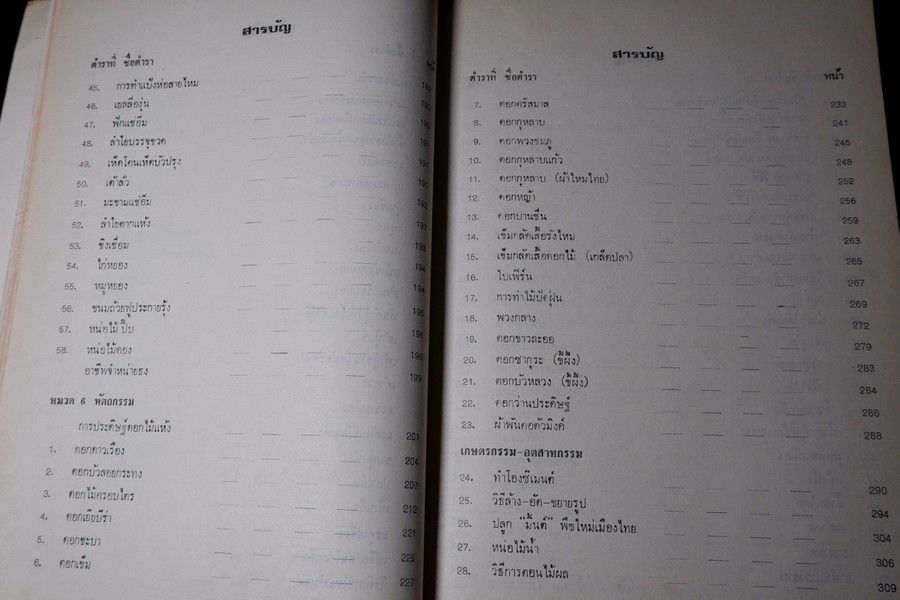 สารบัญ
ตำราที่ ชื่อตำรา
45. การทำแป้งห่อสายไหม
46. เยลลี่องุ่น
47. ฟักแช่อิ่ม
48. ลำไยบรรจุขวด
49. เห็ดโคนเห็ดบัวปรุง
50. เต้าส่วน
51. มะขามแช่อิ่ม
52. ลำไยตากแห้ง
53. ขิงเชื่อม 193
54. ไก่หยอง 194
55. หมูหยอง 194
56. ขนมถ้วยฟูประกายรุ้ง 195
57. หน่อไม้ปี๊บ 196
58. หน่อไม้ดอง 198
อาชีพจำหน่ายธง 199
หมวด 6 หัตถกรรม
การประดิษฐ์ดอกไม้แห้ง 201
1. ดอกดาวเรือง 204
2. ดอกบัวลอยกระทง 207
3. ดอกไม้ครอบไตร 212
4. ดอกเยียบีร่า 221
5. ดอกชะบา 225
6. ดอกเข็ม 227
สารบัญ
ตำราที่ ชื่อตำรา หน้า
7. ดอกคริสมาส 233
8. ดอกกุหลาบ 241
9. ดอกพวงชมภู 245
10. ดอกกุหลาบแก้ว 248
11. ดอกกุหลาบ (ผ้าไหมไทย) 252
12. ดอกหญ้า 256
13. ดอกบานชื่น 259
14. เข็มกลัดเสื้อรังไหม 263
15. เข็มกลัดเสื้อดอกไม้ (เกล็ดปลา) 265
16. ใบเฟิร์น 267
17. การทำไม้ปัดฝุ่น 269
18. พวงกลาง 272
19. ดอกขาวละออ 279
20. ดอกซากุระ (ขี้ผึ้ง) 283
21. ดอกบัวหลวง (ขี้ผึ้ง) 284
22. ดอกว่านประดิษฐ์ 286
23. ผ้าพันคอตัวมิงค์ 288
เกษตรกรรม-อุตสาหกรรม
24. ทำโอ่งซีเมนต์ 290
25. วิธีล้าง-อัด-ขยายรูป 294
26. ปลูก "มิ้นต์" พืชใหม่เมืองไทย 304
27. หน่อไม้น้ำ 306
28. วิธีการตอนไม้ผล 309